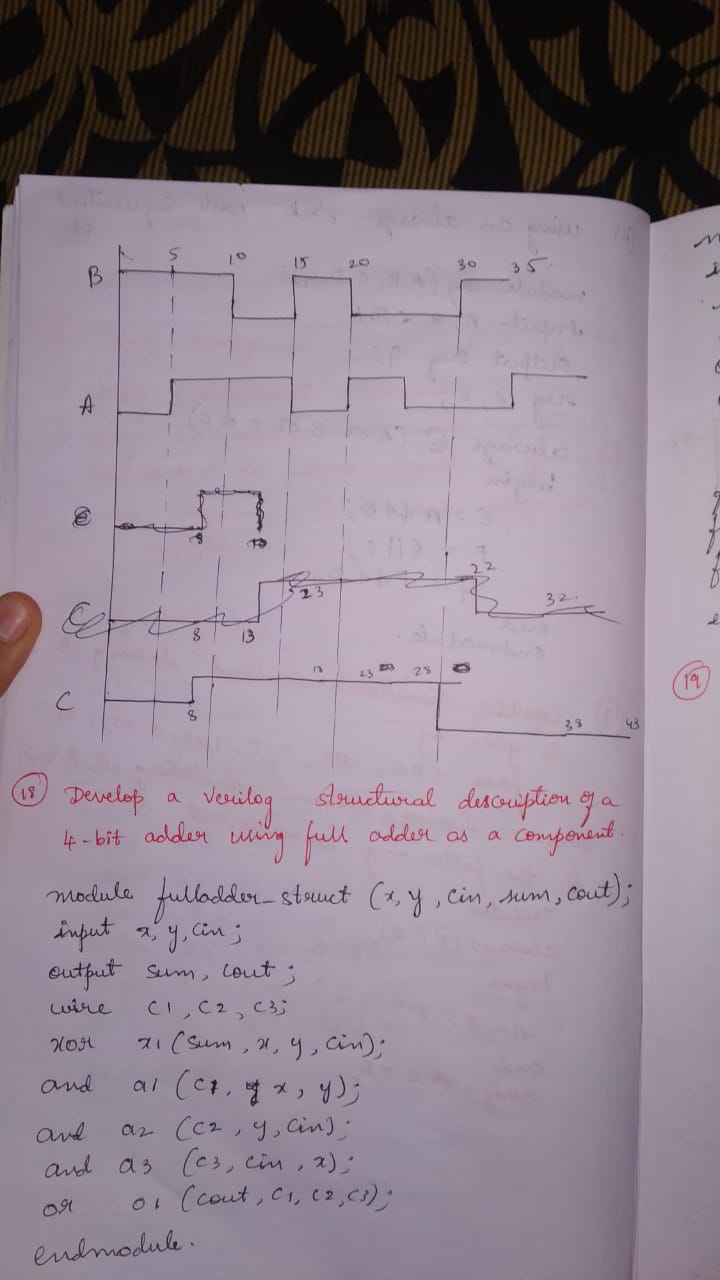 5 10 15 20 30 35
B
A
8
22
23 32
C
8 13
13 23 28
C
8 38 43
18 Develop a Verilog structural description of a
4-bit adder using full adder as a component.
module fulladder_struct (x, y, cin, sum, cout);
input x, y, cin;
output sum, cout;
wire c1, c2, c3;
xor x1 (sum, x, y, cin);
and a1 (c1, x, y);
and a2 (c2, y, cin);
and a3 (c3, cin, x);
or o1 (cout, c1, c2, c3);
endmodule.
19